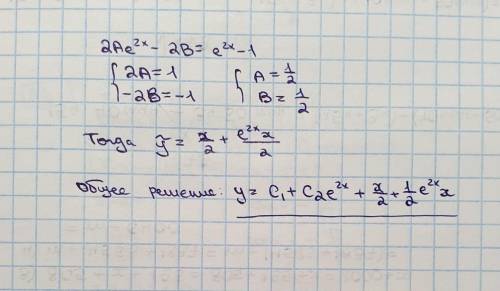 2Ae^{2x} - 2B = e^{2x} - 1
{ 2A = 1 { A = 1/2
{ -2B = -1 { B = 1/2
Тогда ỹ = x/2 + e^{2x}x/2
Общее решение: y = C₁ + C₂e^{2x} + x/2 + 1/2 e^{2x} x